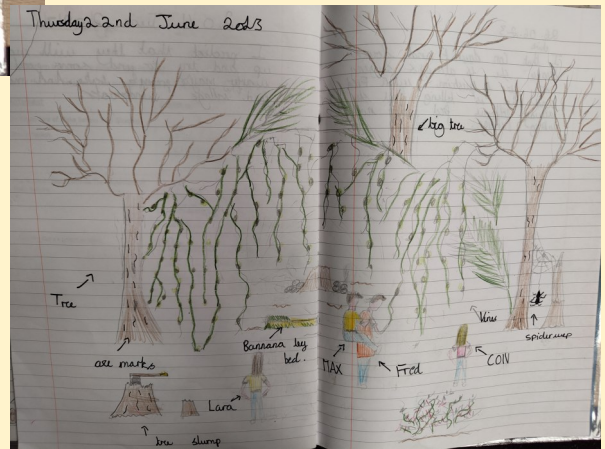 Thursday 22nd June 2023
big tree
Tree
Vines
spider web
axe marks
Bannana ley
bed.
MAX
Fred
CON
Lara
tree stump